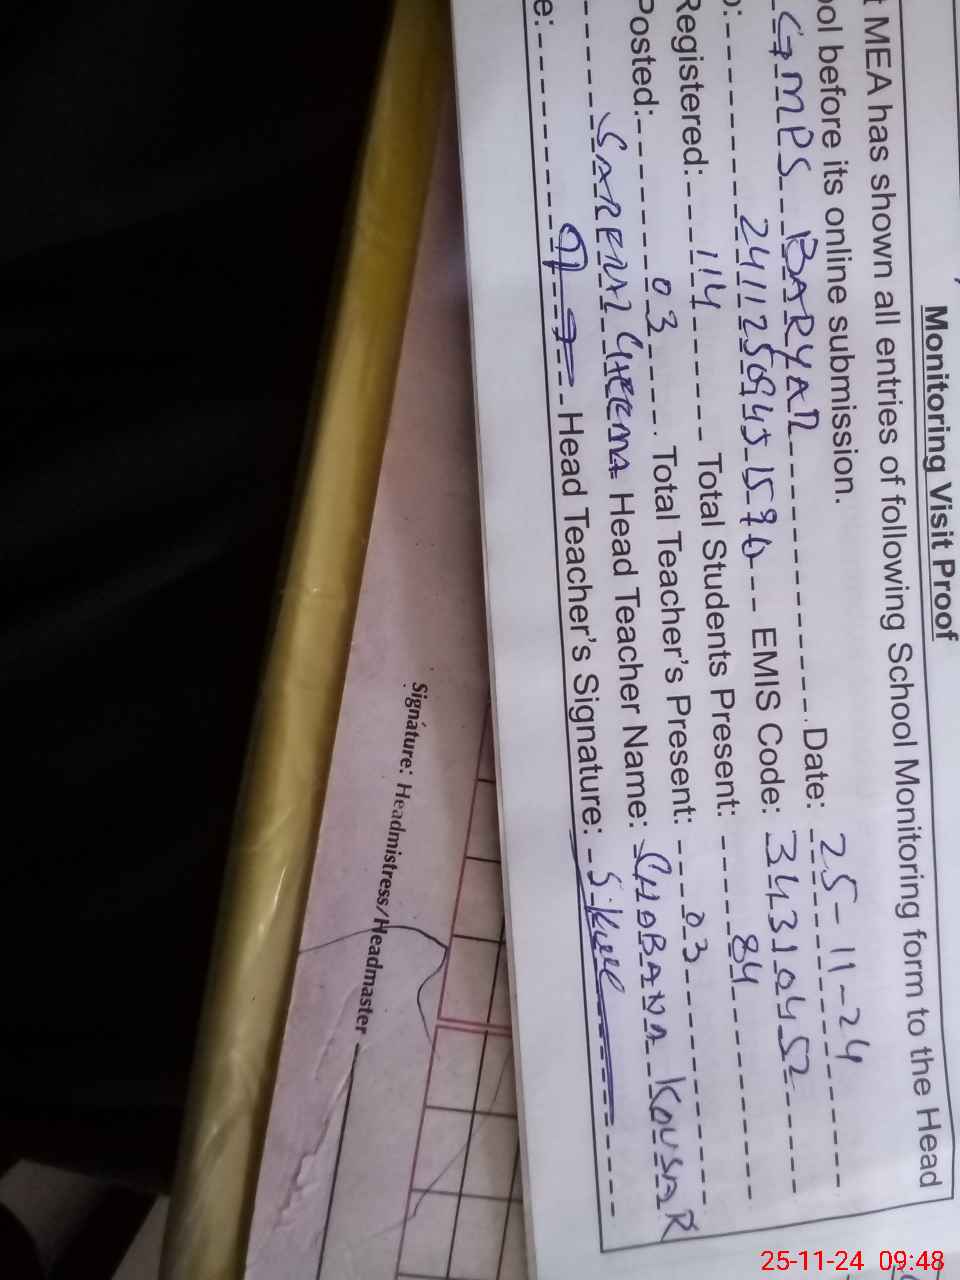 Monitoring Visit Proof
t MEA has shown all entries of following School Monitoring form to the Head
ool before its online submission.
GMPS BARYAR Date: 25-11-24
EMIS Code: 34310452
Registered: 114 Total Students Present: 84
Posted: 03 Total Teacher's Present: 03
CHEEMA Head Teacher Name: SHOBANA KOUSAR
e: Head Teacher's Signature:
Signature: Headmistress/Headmaster
25-11-24 09:48